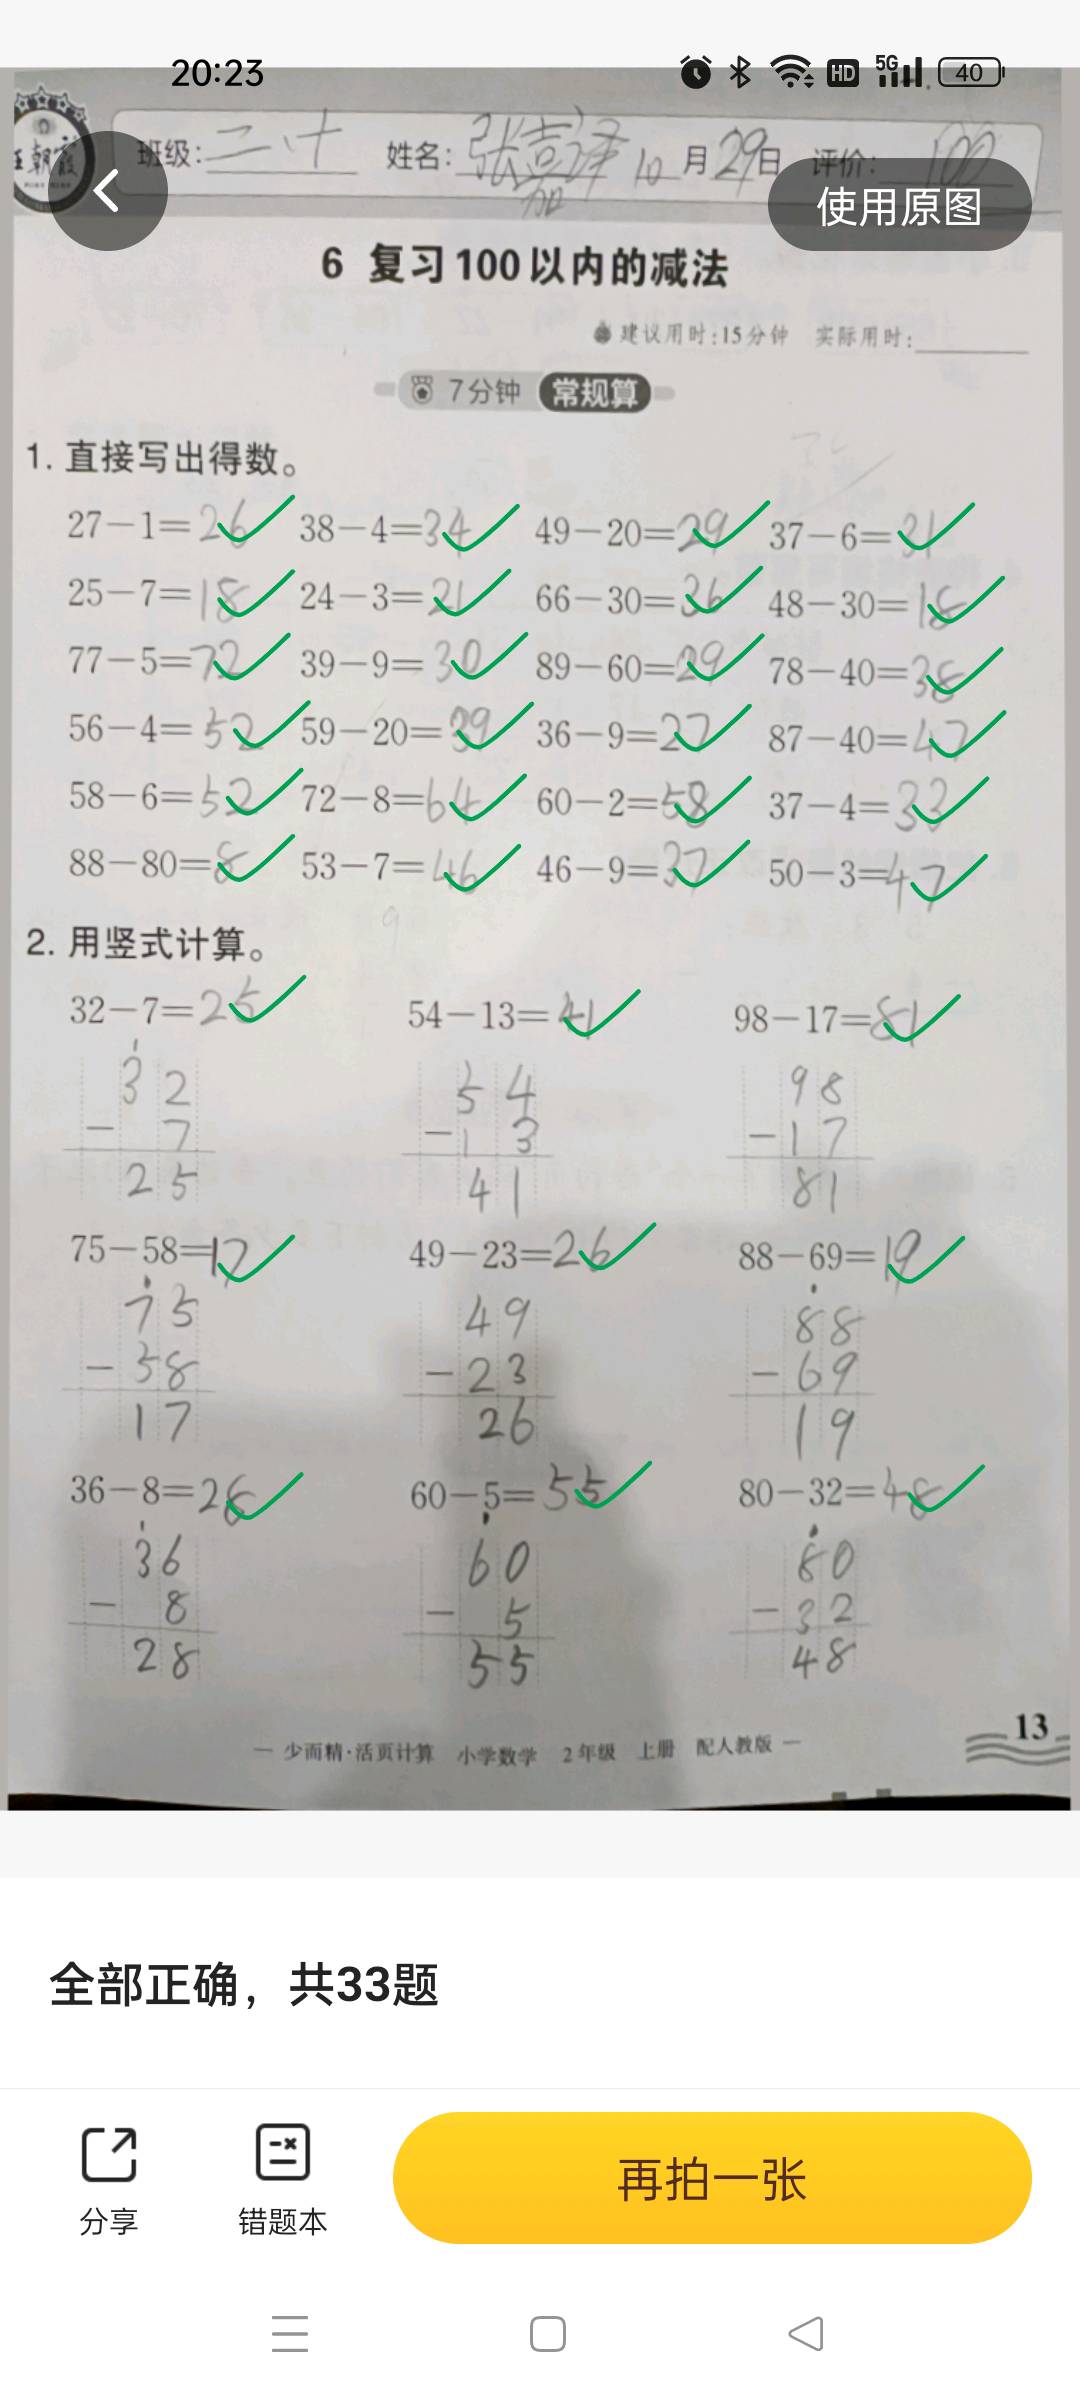 20:23
HD 5G 40
班级: 二十 姓名: 张嘉译 10月29日 评价: 100
加
使用原图
6 复习100以内的减法
建议用时:15分钟 实际用时:
7分钟 常规算
1. 直接写出得数。
27-1=26 38-4=34 49-20=29 37-6=31
25-7=18 24-3=21 66-30=36 48-30=18
77-5=72 39-9=30 89-60=29 78-40=38
56-4=52 59-20=39 36-9=27 87-40=47
58-6=52 72-8=64 60-2=58 37-4=33
88-80=8 53-7=46 46-9=37 50-3=47
2. 用竖式计算。
32-7=25 54-13=41 98-17=81
32 54 98
-7 -13 -17
25 41 81
75-58=17 49-23=26 88-69=19
75 49 88
-58 -23 -69
17 26 19
36-8=28 60-5=55 80-32=48
36 60 80
-8 -5 -32
28 55 48
— 少而精·活页计算 小学数学 2年级 上册 配人教版 —
13
全部正确，共33题
分享 错题本 再拍一张